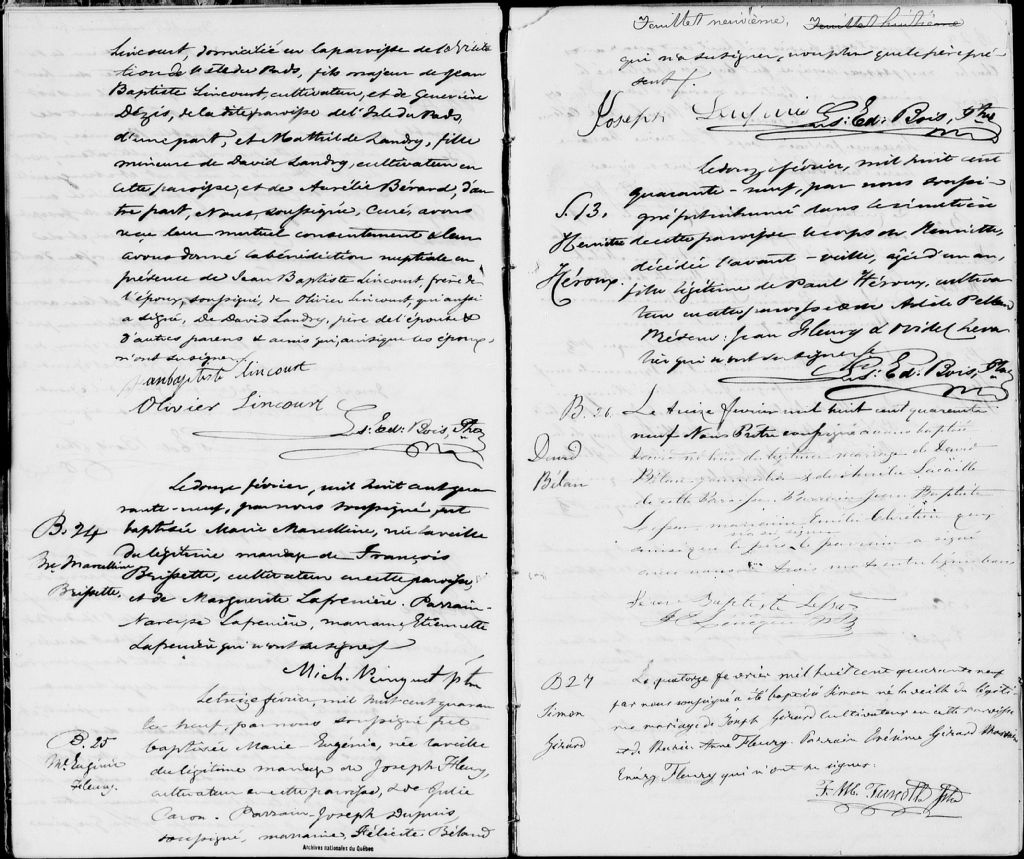 Lincourt, domicilié en la paroisse de la Visita
tion de l'Isle du Pads, fils majeur de Jean
Baptiste Lincourt, cultivateur, et de Geneviève
Dézis, de la dite paroisse de l'Isle du Pads,
d'une part, et Mathilde Landry, fille
mineure de David Landry, cultivateur en
cette paroisse, et de Aurélie Bérard, d'au
tre part, Nous, soussigné, Curé, avons
reçu leur mutuel consentement & leur
avons donné la bénédiction nuptiale en
présence de Jean Baptiste Lincourt, frère de
l'époux, soussigné, de Olivier Lincourt, qui aussi
a signé, de David Landry, père de l'épouse &
d'autres parens & amis qui, ainsi que les époux,
n'ont su signer
Jeanbaptiste Lincourt
Olivier Lincourt
Ls: Ed: Bois, Ptre
B. 24
Me Marcelline
Brissette.
Le douze février, mil huit cent qua
rante-neuf, par nous soussigné fut
baptisée Marie Marcelline, née la veille
du légitime mariage de François
Brissette, cultivateur en cette paroisse
et de Marguerite Lafrenière. Parrain
Narcisse Lafrenière, marraine, Etiennette
Lafrenière qui n'ont su signer
Mich. Ringuet ptre
B. 25
Me Eugénie
Fleury.
Le treize février, mil huit cent quaran
te neuf, par nous soussigné fut
baptisée Marie-Eugénie, née la veille
du légitime mariage de Joseph Fleury,
cultivateur en cette paroisse, & de Julie
Caron. Parrain Joseph Dupuis,
soussigné, marraine, Félicité Béland
Archives nationales du Québec
Feuillet neuvième. Feuillet huitième
qui n'a su signer, non plus que le père pré
sent.
Joseph Dupuis Ls: Ed: Bois, Ptre
S. 13.
Henriette
Héroux.
Le douze février, mil huit cent
quarante-neuf, par nous soussi-
gné fut inhumé dans le cimetière
de cette paroisse le corps de Henriette,
décédée l'avant-veille, âgée d'un an,
fille légitime de Paul Héroux, cultiva
teur en cette paroisse & de Adèle
Jean Fleury &
qui n'ont su signer
Ls: Ed: Bois, Ptre
B. 26.
David
Bélan
Le treize février mil huit cent quarante
neuf Nous Prêtre soussigné avons baptisé
David né hier du légitime mariage de David
Bélan & de Aurélie Lacaille
de cette Paroisse. Parrain Jean Baptiste
marraine Emilie Chrétien qui
n'a su signer
ainsi que le père, le parrain a signé
avec nous. trois mots entre lignes bons
Jean Baptiste
B 27
Simon
Gérard
Le quatorze fevrier mil huit cent quarante neuf
par nous soussigné a été baptisé Simon né la veille du légiti-
me mariage de Joseph Gérard cultivateur en cette paroisse
et de Marie Anne Fleury. Parrain Onésime Gérard Marraine
Fleury qui n'ont su signer.